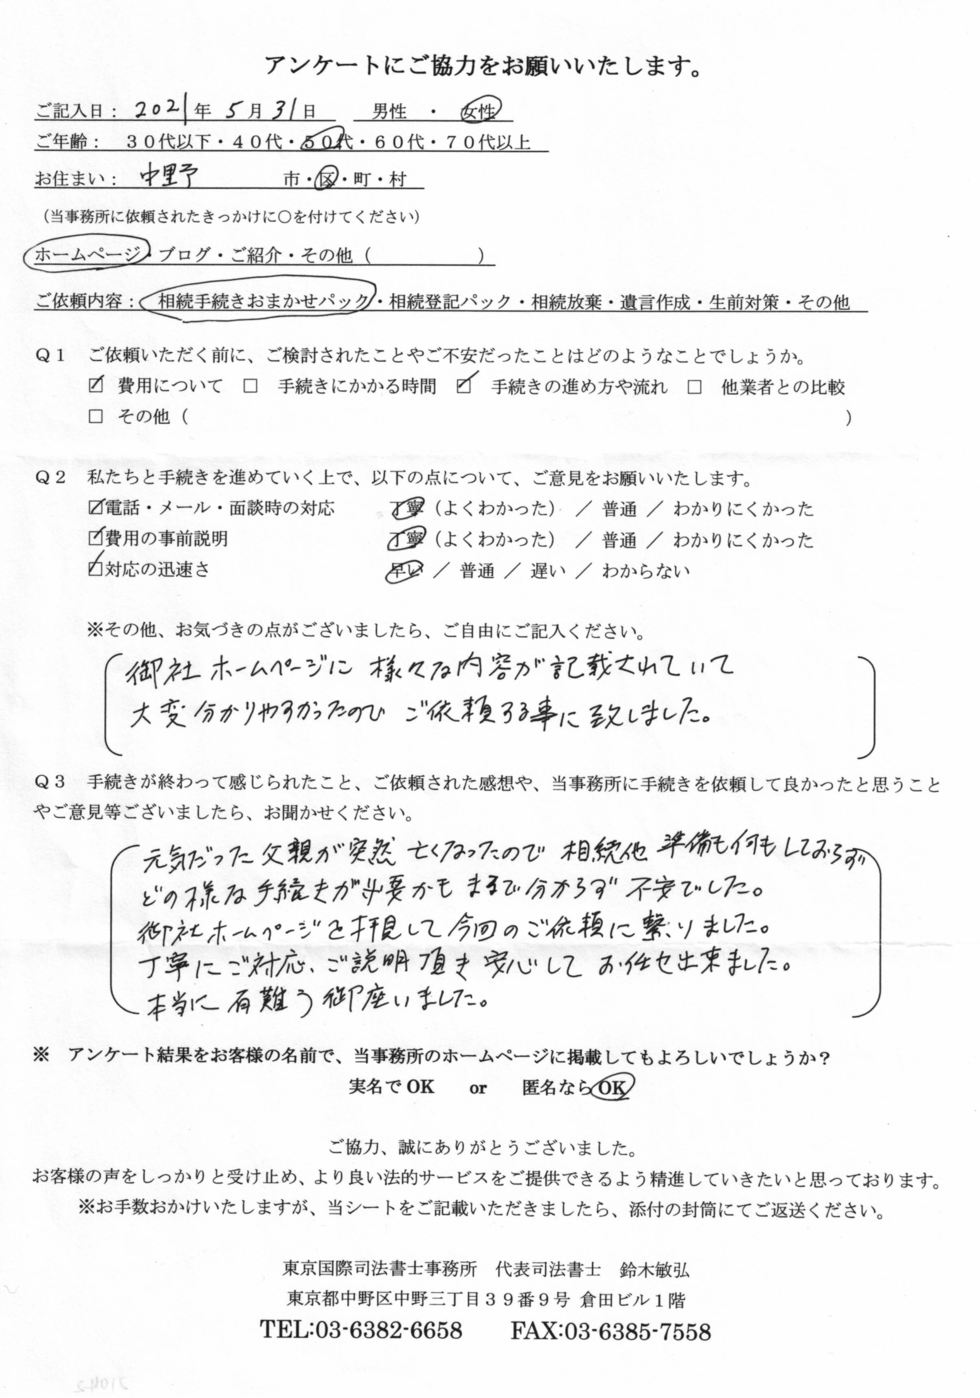 アンケートにご協力をお願いいたします。
ご記入日： 2021年 5月 31日　男性 ・ 女性
ご年齢： 30代以下・40代・50代・60代・70代以上
お住まい： 中野　市・区・町・村
（当事務所に依頼されたきっかけに○を付けてください）
ホームページ・ブログ・ご紹介・その他（　　　　　　）
ご依頼内容： 相続手続きおまかせパック・相続登記パック・相続放棄・遺言作成・生前対策・その他
Q1　ご依頼いただく前に、ご検討されたことやご不安だったことはどのようなことでしょうか。
☑ 費用について □ 手続きにかかる時間 ☑ 手続きの進め方や流れ □ 他業者との比較
□ その他（　　　　　　　　　　　　）
Q2　私たちと手続きを進めていく上で、以下の点について、ご意見をお願いいたします。
☑電話・メール・面談時の対応　丁寧（よくわかった） ／ 普通 ／ わかりにくかった
☑費用の事前説明　丁寧（よくわかった） ／ 普通 ／ わかりにくかった
☑対応の迅速さ　早い ／ 普通 ／ 遅い ／ わからない
※その他、お気づきの点がございましたら、ご自由にご記入ください。
御社ホームページに様々な内容が記載されていて
大変分かりやすかったので ご依頼する事に致しました。
Q3　手続きが終わって感じられたこと、ご依頼された感想や、当事務所に手続きを依頼して良かったと思うこと
やご意見等ございましたら、お聞かせください。
元気だった父親が突然亡くなったので 相続他 準備も何もしておらず
どの様な手続きが必要かもまるで分からず 不安でした。
御社ホームページを拝見して今回のご依頼に繋りました。
丁寧にご対応、ご説明頂き 安心して お任せ出来ました。
本当に有難う御座いました。
※　アンケート結果をお客様の名前で、当事務所のホームページに掲載してもよろしいでしょうか？
実名でOK　or　匿名ならOK
ご協力、誠にありがとうございました。
お客様の声をしっかりと受け止め、より良い法的サービスをご提供できるよう精進していきたいと思っております。
※お手数おかけいたしますが、当シートをご記載いただきましたら、添付の封筒にてご返送ください。
東京国際司法書士事務所　代表司法書士　鈴木敏弘
東京都中野区中野三丁目39番9号 倉田ビル1階
TEL:03-6382-6658　FAX:03-6385-7558